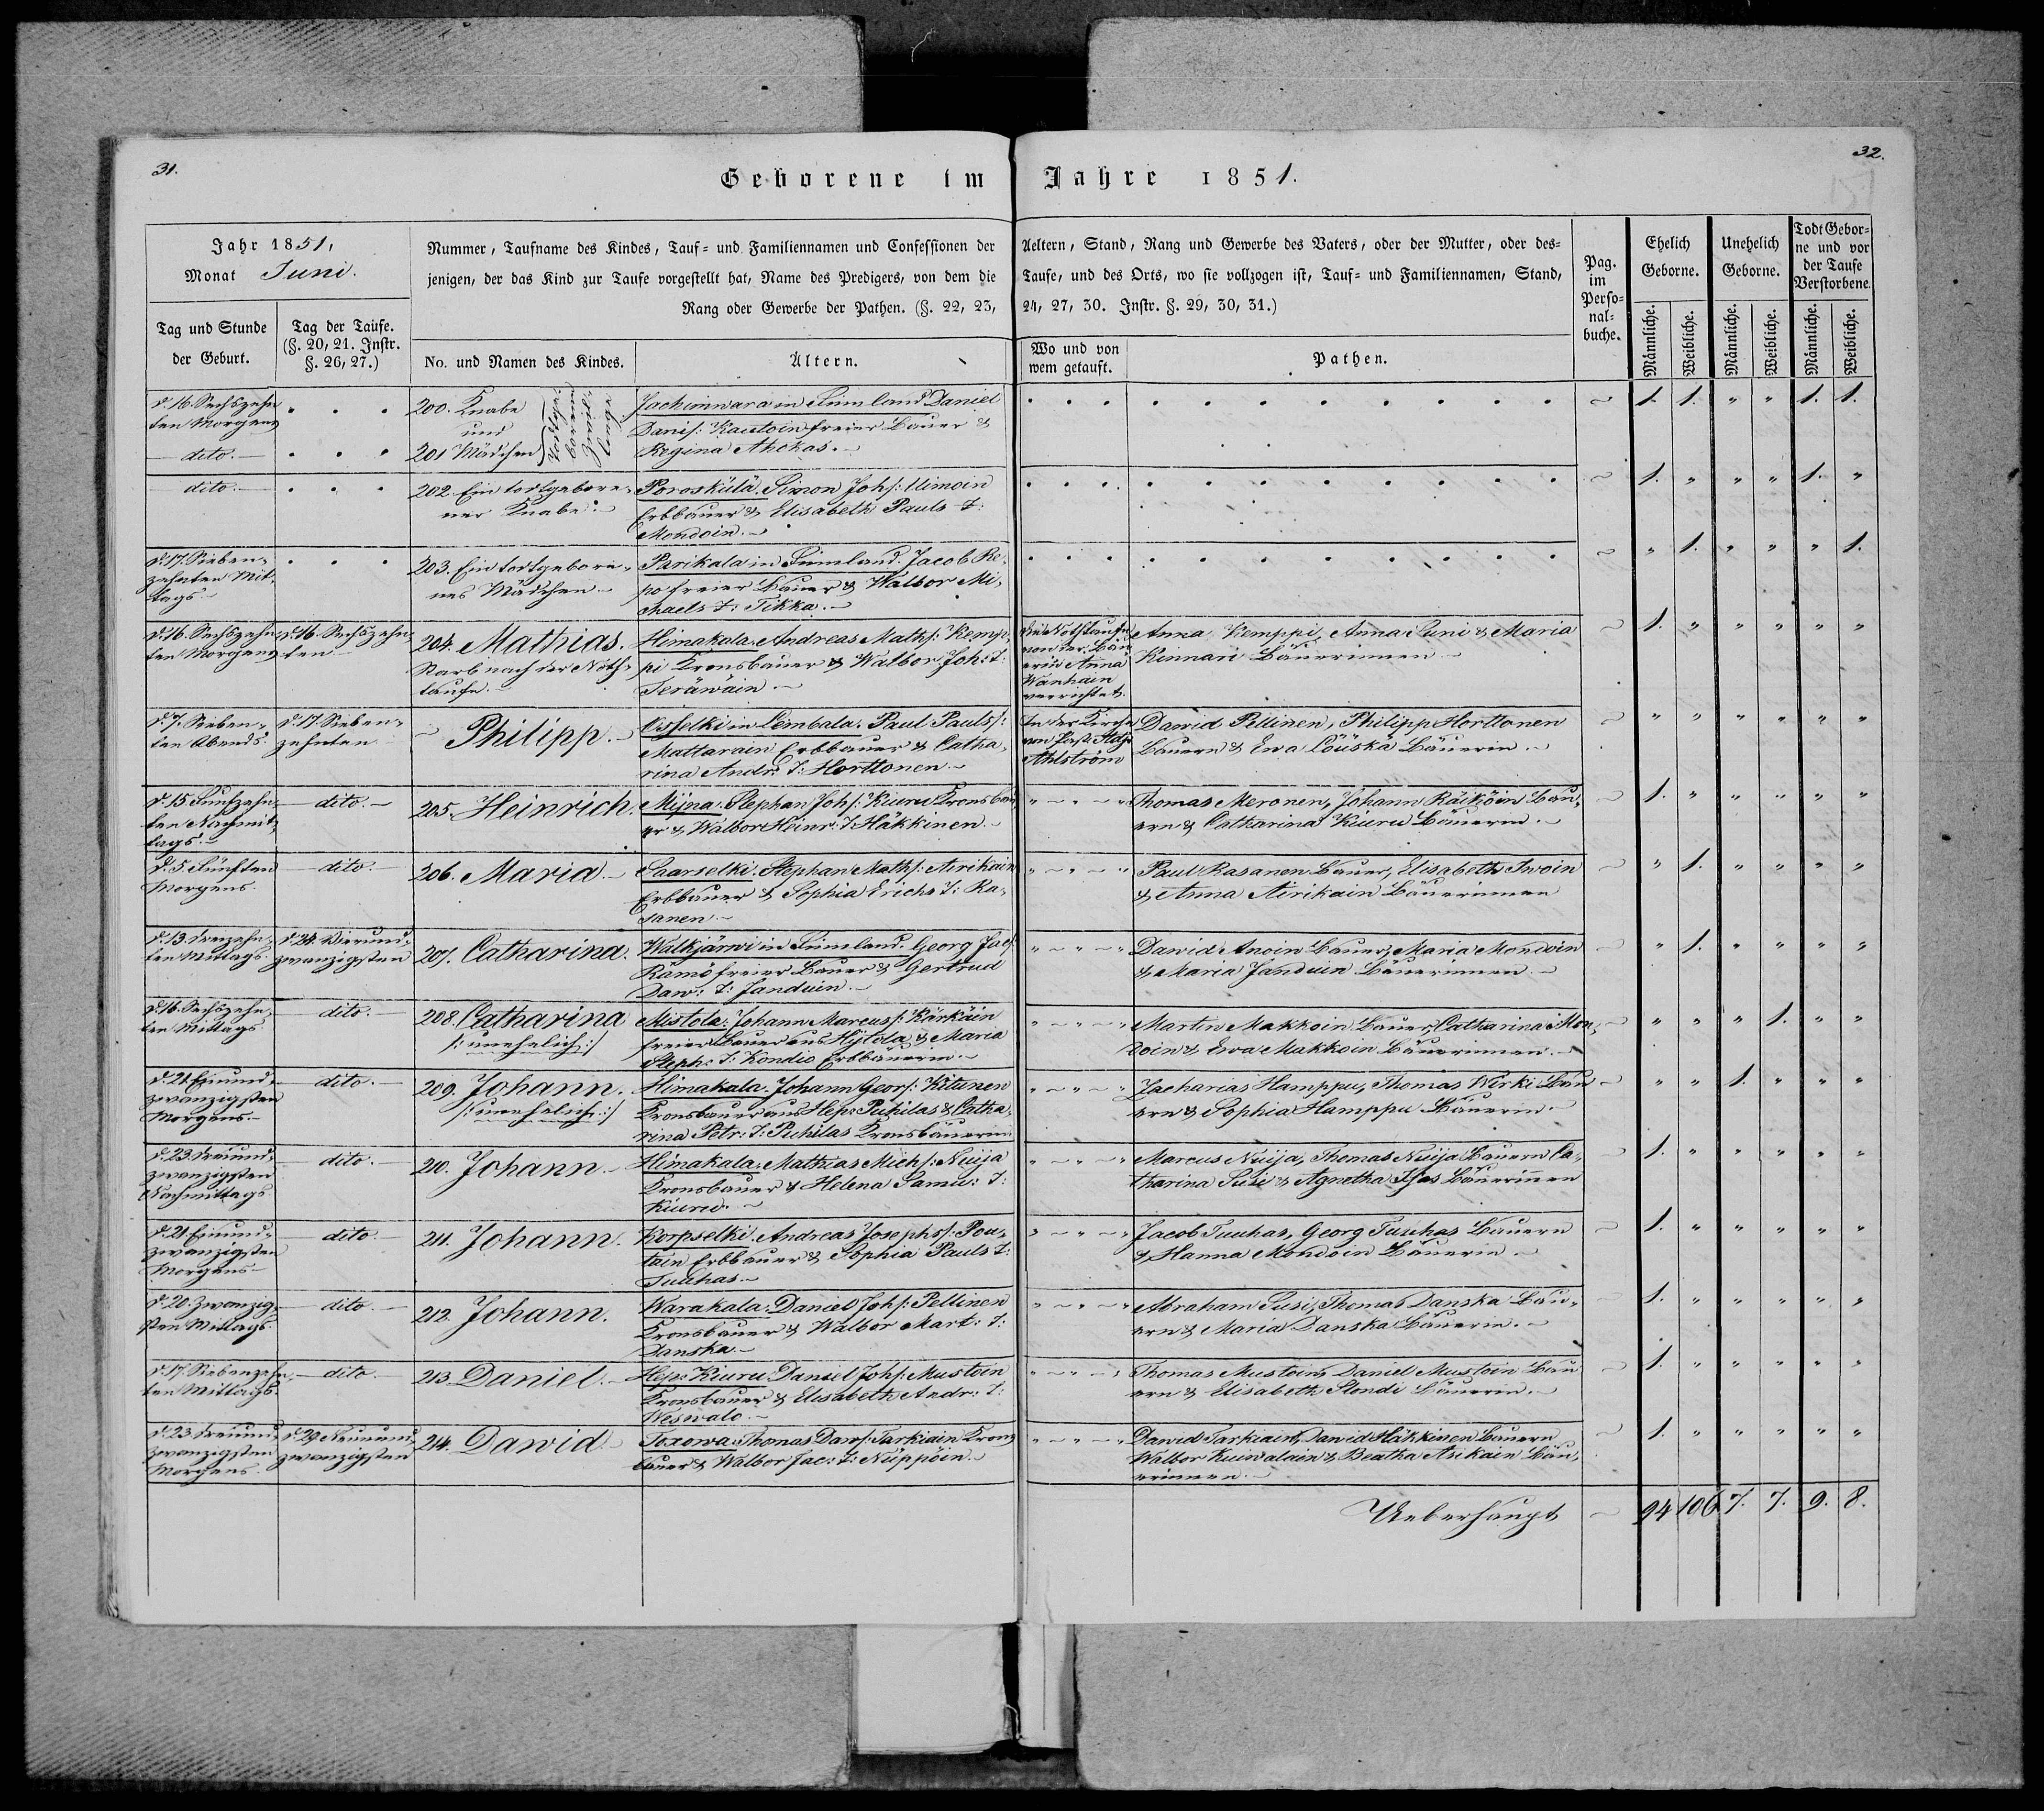 31.
32.
Geborene im Jahre 1851.
Jahr 1851,
Monat Juni.
Nummer, Taufname des Kindes, Tauf- und Familiennamen und Confessionen der Aeltern, Stand, Rang und Gewerbe des Vaters, oder der Mutter, oder des-
jenigen, der das Kind zur Taufe vorgestellt hat, Name des Predigers, von dem die Taufe, und des Orts, wo sie vollzogen ist, Tauf- und Familiennamen, Stand,
Rang oder Gewerbe der Pathen. (§. 22, 23, 24, 27, 30. Instr. §. 29, 30, 31.)
Pag.
im
Perso-
nal-
buche.
Ehelich
Geborne.
Unehelich
Geborne.
Todt Gebor-
ne und vor
der Taufe
Verstorbene.
Tag und Stunde
der Geburt.
Tag der Taufe.
(§. 20, 21. Instr.
§. 26, 27.)
No. und Namen des Kindes.
Ältern.
Wo und von
wem getauft.
Pathen.
Männliche.
Weibliche.
Männliche.
Weibliche.
Männliche.
Weibliche.
d. 16. Sechszehn
ten Morgens
dito.
200. Knabe
und
201 Mädchen
Jachimwara in Finnland Daniel
Danis: Kautoin freier Bauer &
Regina Ahokas.
1. 1. " " 1. 1.
dito.
202. Ein todtgebore-
ner Knabe.
Poroskülä. Simon Johs: Uimoin
Erbbauer & Elisabeth Pauls T:
Mondoin.
1. " " " 1. "
d. 17. Sieben-
zehnten Mit-
tags.
203. Ein todtgebore-
nes Mädchen
Parikala in Finnland. Jacob Re-
po freier Bauer & Walbor Mi-
chaels T: Tikka.
" 1. " " " 1.
d. 16. Sechszehn-
ten Morgens
d. 16. Sechszehn-
ten
204. Mathias.
Starb nach der Noth-
taufe.
Himakala. Andreas Maths: Kemp-
pi Kronsbauer & Walbor Joh: T:
Teräwäin.
Die Nothtaufe
von der Bäu
erin Anna
Wänhäin
verrichtet.
Anna Kemppi, Anna Suni & Maria
Kinnari Bäuerinnen
1. " " " " "
d. 7. Sieben-
ten Abends
d. 17. Sieben-
zehnten
Philipp.
in Lembala. Paul Pauls:
Mattarain Erbbauer & Catha-
rina Andr: T: Horttonen
In der Kirche
von Past: Adj:
Ahlström
Dawid Pellinen, Philipp Horttonen
Bauern & Ewa Löüska Bäuerin.
" " " " " "
d. 15. Fünfzehn-
ten Nachmit-
tags.
dito.
205. Heinrich.
Mijna. Stephan Johs: Kiuru Kronsbau
er & Walbor Heinr: T: Häkkinen.
Thomas Meronen, Johann Räiköin Bau-
ern & Catharina Kiuru Bäuerin.
1. " " " " "
d. 5. Fünften
Morgens.
dito.
206. Maria.
Saarselki. Stephan Maths: Airikain
Erbbauer & Sophia Erichs T: Ra-
sanen.
Paul Rasanen Bauer, Elisabeth Iwoin
& Anna Airikain Bäuerinnen
" 1. " " " "
d. 13. Dreizehn-
ten Mittags.
d. 24. Vierund-
zwanzigsten
207. Catharina.
Walkjärwi in Finnland. Georg Jacs:
Rämö freier Bauer & Gertrud
Daw: T: Janduin.
Dawid Anoin Bauer, Maria Mondoin
& Maria Janduin Bäuerinnen.
" 1. " " " "
d. 16. Sechszehn-
ten Mittags
dito.
208. Catharina
/: unehelich :/
Mistola: Johann Marcuss: Kärkäin
freier Bauer aus Hijtola & Maria
Steph: T: Kondio Erbbäuerin.
Martin Makkoin Bauer, Catharina Mon-
doin & Ewa Makkoin Bäuerinnen.
" " " 1. " "
d. 21. Einund-
zwanzigsten
Morgens.
dito.
209. Johann.
/: unehelich :/
Himakala. Johann Geors: Kitunen
Kronsbauer aus Hep: Puhilas & Catha-
rina Petr: T: Puhilas Kronsbäuerin
Zacharias Hamppu, Thomas Wirki Bau
ern & Sophia Hamppu Bäuerin.
" " 1. " " "
d. 23. Dreiund-
zwanzigsten
Nachmittags
dito.
210. Johann.
Himakala. Mathias Michs: Nuija
Kronsbauer & Helena Samu: T:
Kiuru.
Marcus Nuija, Thomas Nuija Bauern Ca-
tharina Susi & Agnetha Bäuerinnen
1. " " " " "
d. 21. Einund-
zwanzigsten
Morgens
dito
211. Johann.
Korpselki. Andreas Josephs: Pou-
tain Erbbauer & Sophia Pauls T:
Tuuhas.
Jacob Tuuhas, Georg Tuuhas Bauern
& Hanna Mondoin Bäuerin.
1. " " " " "
d. 20. Zwanzig-
sten Mittags.
dito.
212. Johann.
Warakala: Daniel Johs: Pellinen
Kronsbauer & Walbor Mart: T:
Danska.
Abraham Susi, Thomas Danska Bau-
ern & Maria Danska Bäuerin.
1. " " " " "
d. 17. Siebenzehn-
ten Mittags.
dito.
213. Daniel.
Hep: Kiuru: Daniel Johs: Mustoin
Kronsbauer & Elisabeth Andr: T:
Weswalo.
Thomas Mustoin, Daniel Mustoin Bau
ern & Elisabeth Slondi Bäuerin.
1. " " " " "
d. 23. Dreiund-
zwanzigsten
Morgens.
d. 29. Neunund-
zwanzigsten
214. Dawid.
Toxowa. Thomas Daws: Tarkiain Krons
bauer & Walbor Jac: T: Nüppöin.
Dawid Tarkiain, Dawid Häkkinen Bauern
Walbor Kuiwalain & Beatha Asikain Bäu-
erinnen.
1. " " " " "
Ueberhaupt
94 106 7. 7. 9. 8.